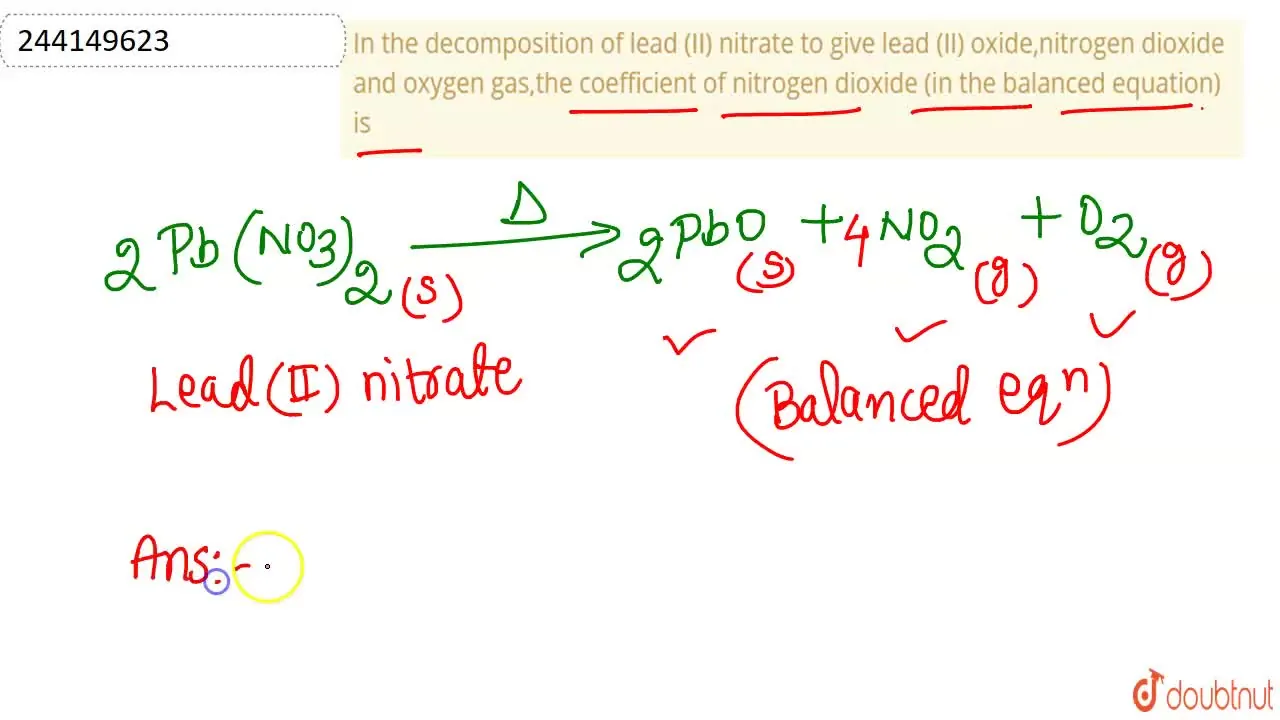 244149623
In the decomposition of lead (II) nitrate to give lead (II) oxide,nitrogen dioxide
and oxygen gas,the coefficient of nitrogen dioxide (in the balanced equation)
is
2 Pb(NO3)2(s) Δ→ 2PbO(s) + 4NO2(g) + O2(g)
Lead (II) nitrate
(Balanced eqn)
Ans:-
doubtnut